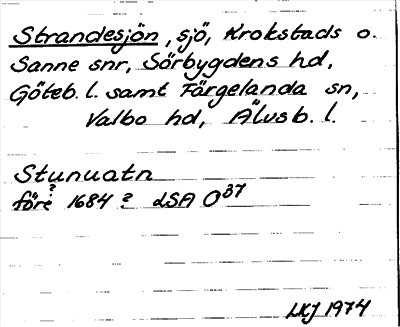 Strandesjön, sjö, Krokstads o.
Sanne snr, Sörbygdens hd,
Göteb. l. samt Färgelanda sn,
Valbo hd, Älvsb. l.
Stunuatn
?
före 1684 ? LSA O37
LKJ 1974